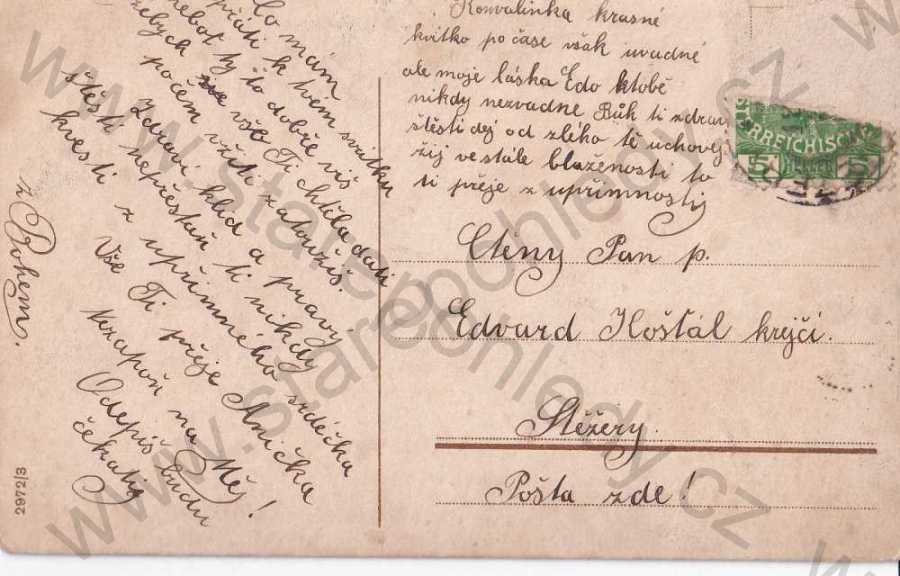 Co mám
přáti k tvem svátku
nebot ty to dobře víš
žebych ti vše Ti chtěla dáti
po čem vžiti zatoužíš.
Zdraví klid a pravý
štěstí nepřestaň ti nikdy
kvesti z upřímného srdéčka
Vše Ti přeje Anička
Nezapoň na Mě!
Odepiš budu
čekatij
z Bohem.
Konvalinka krasné
kvítko po čase však uvadné
ale moje láska Edo ktobě
nikdy nezvadne Bůh ti zdraví
štěsti dej od zlého tě uchovej
žij ve stále blaženosti to
ti přeje z upřimnostij
RREICHISCHE
5 HELLER 5
Ctěny Pan p.
Edvard Hošťál krejčí.
Stěžery.
Pošta zde!
2972/3
www.starepohledy.cz
www.starepohledy.cz